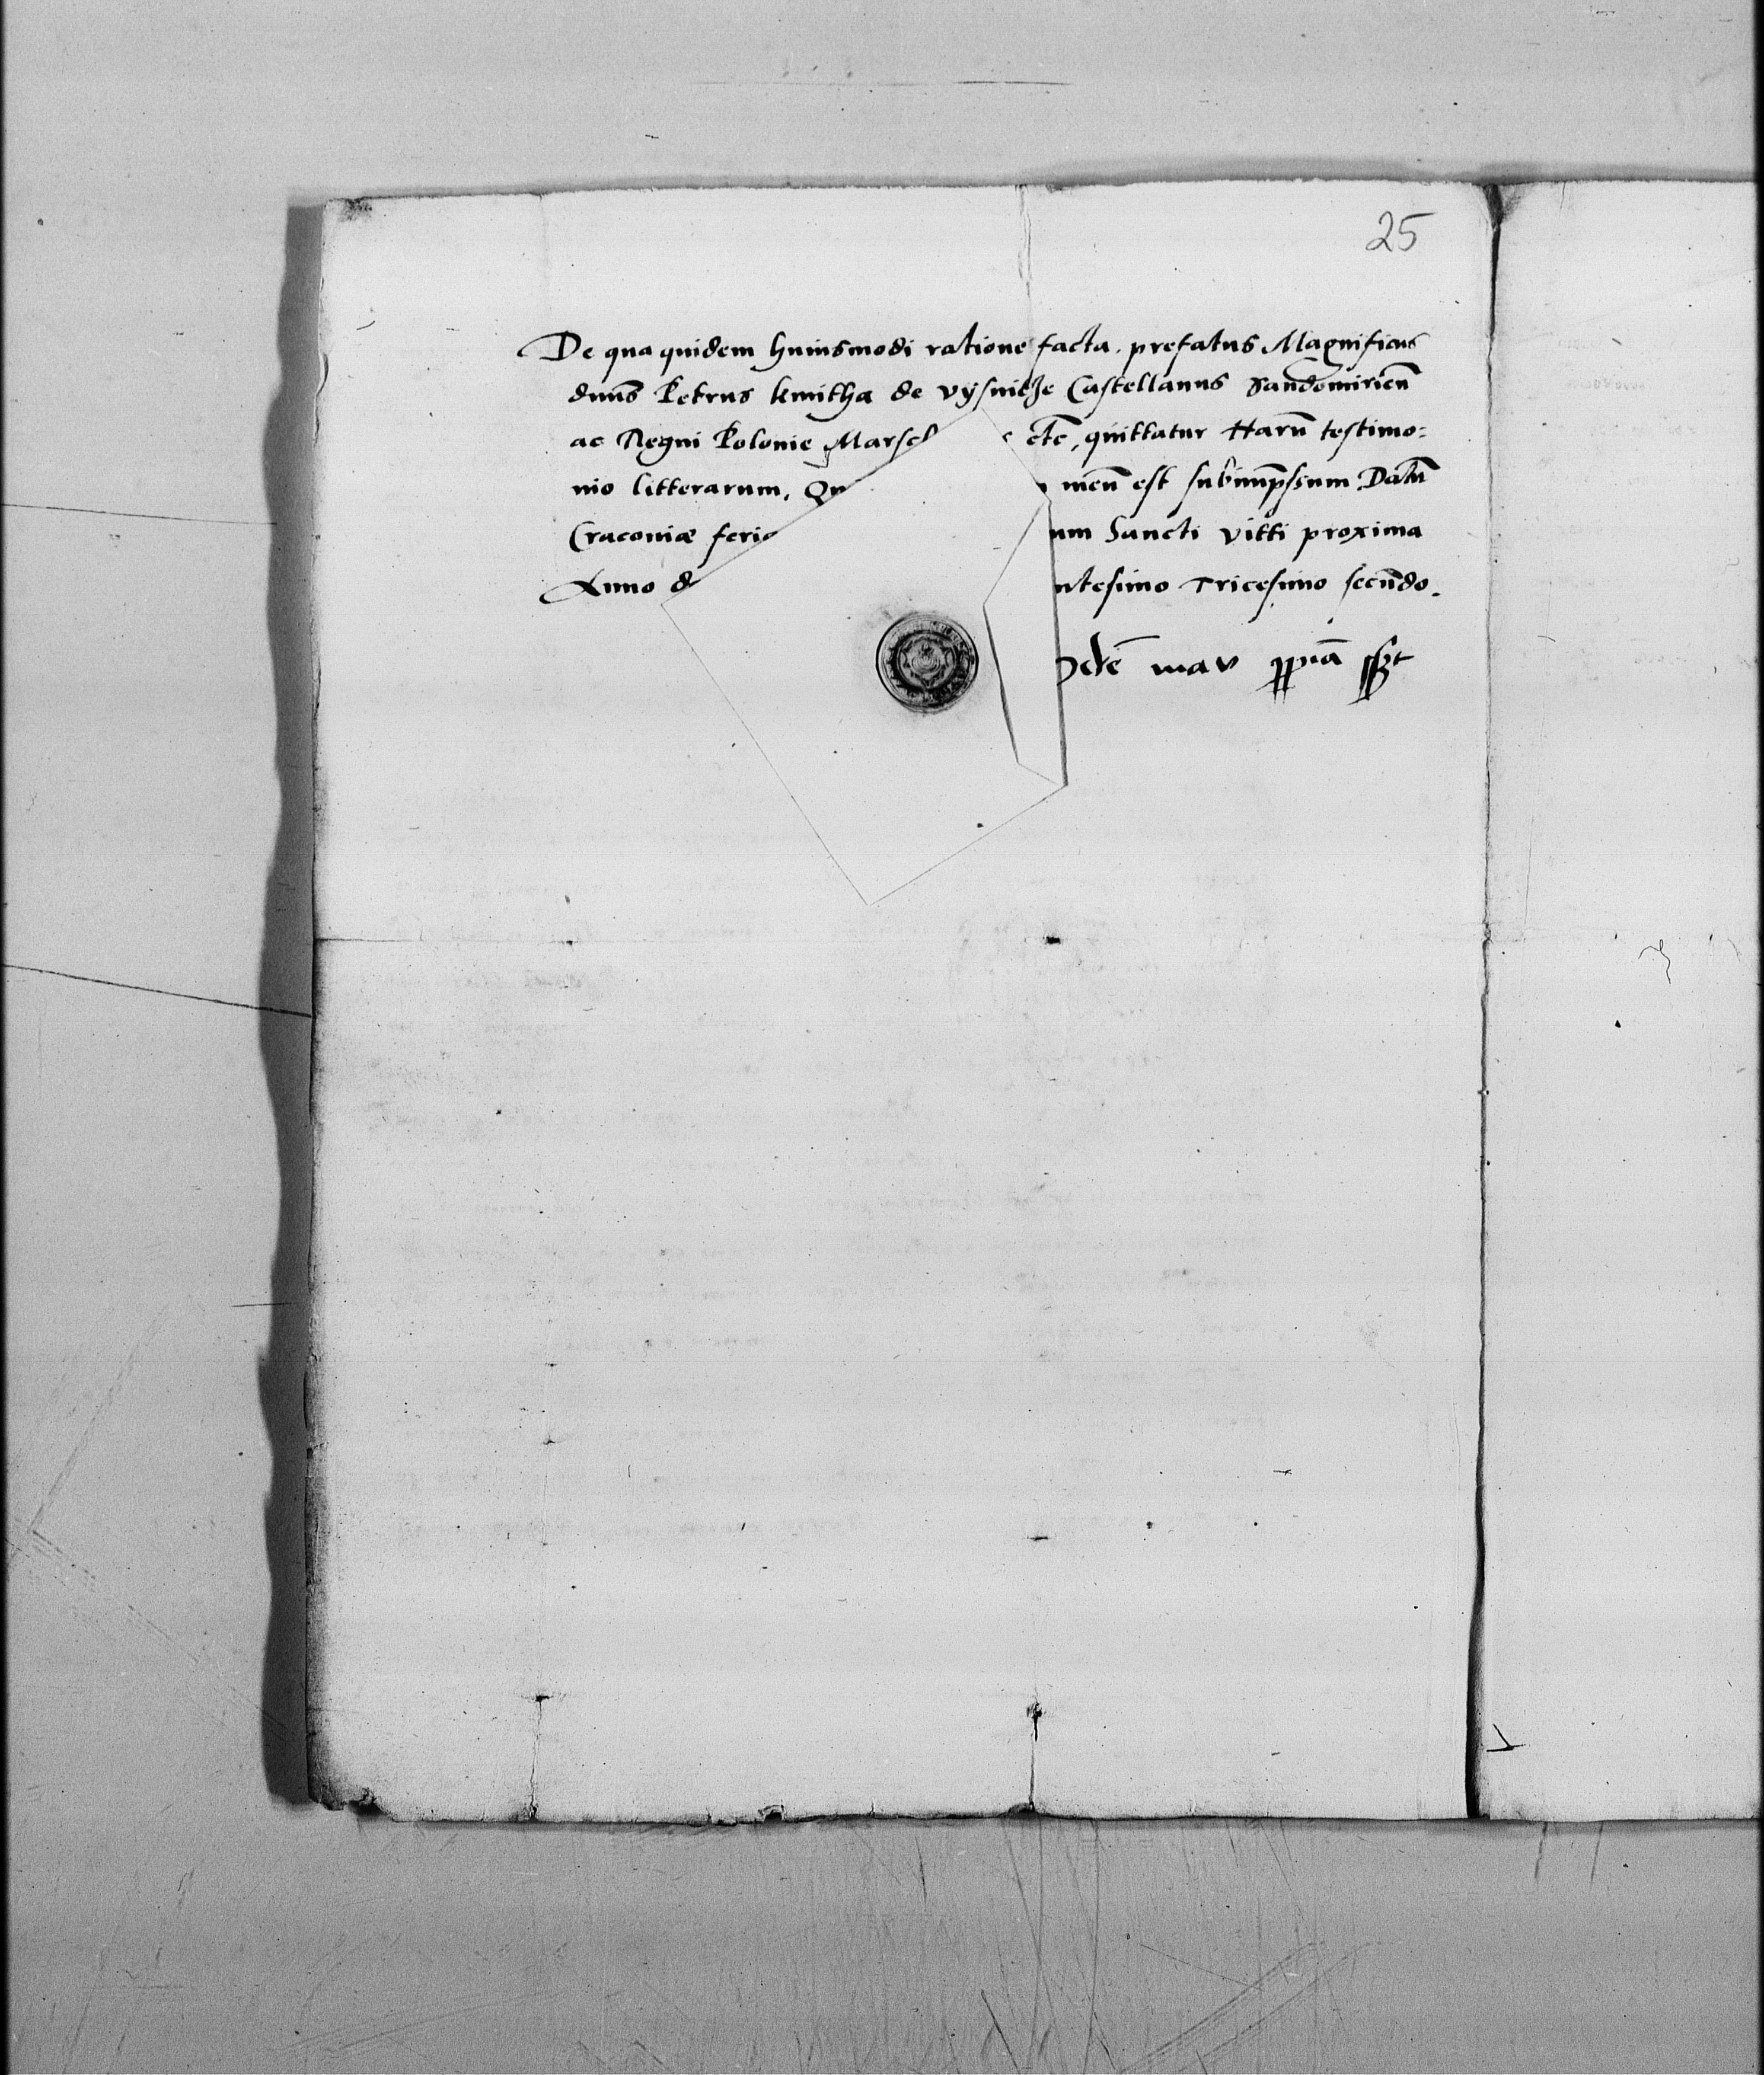 25
De qua quidem huiusmodi ratione facta. prefatus Magnificus
dnūs Petrus kmitha de vÿsnicze Castellanus Sandomirieñ
ac Regni Polonie Marsch etc̄, quittatur Harū testimo:
nio litterarum, Qu meū est subimp̄ssum Datū
Craconiæ feria um Sancti vitti proxima
Anno d ntesimo Tricesimo secūdo.
man ppriā sszt